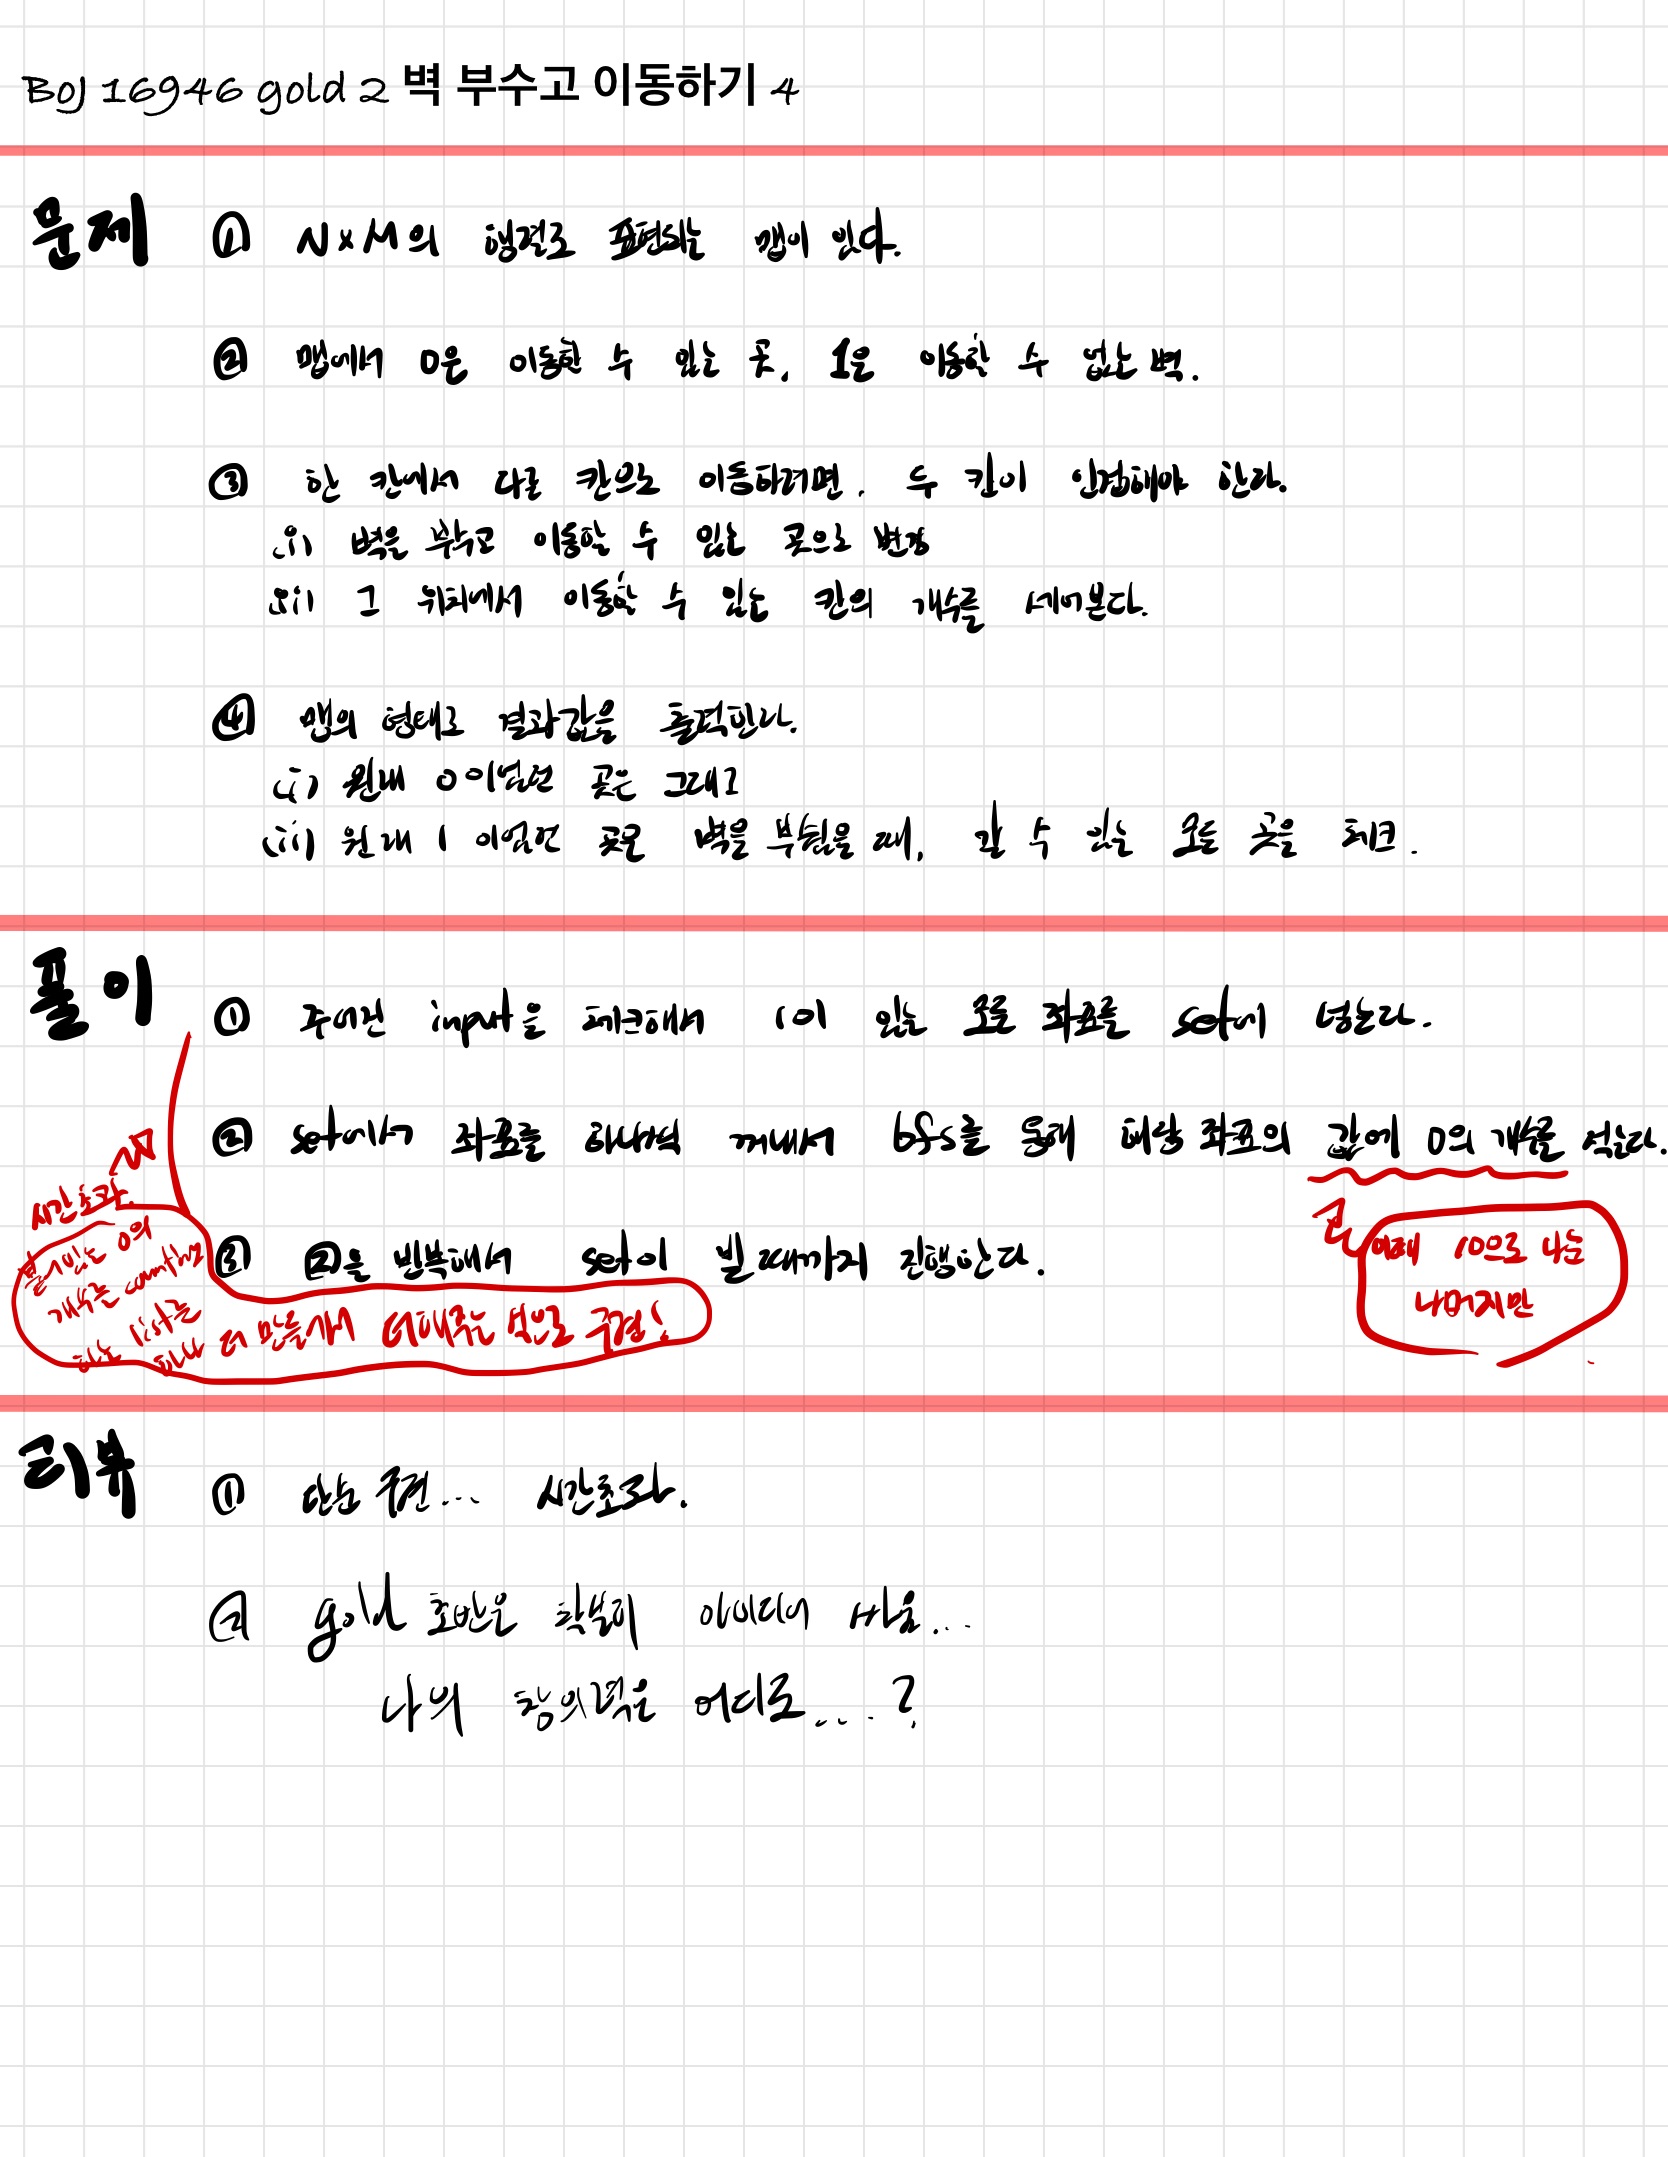 BOJ 16946 gold 2 벽 부수고 이동하기 4
문제
① N x M의 행렬로 표현되는 맵이 있다.
② 맵에서 0은 이동할 수 있는 곳, 1은 이동할 수 없는 벽.
③ 한 칸에서 다른 칸으로 이동하려면, 두 칸이 인접해야 한다.
(i) 벽을 부수고 이동할 수 있는 곳으로 변경
(ii) 그 위치에서 이동할 수 있는 칸의 개수를 세어본다.
④ 맵의 형태로 결과값을 출력한다.
(i) 원래 0이었던 곳은 그대로
(ii) 원래 1이었던 곳은 벽을 부쉈을 때, 갈 수 있는 모든 곳을 체크.
풀이
① 주어진 input을 체크해서 1이 있는 모든 좌표를 set에 넣는다.
② set에서 좌표를 하나씩 꺼내서 bfs를 통해 해당 좌표의 값에 0의 개수를 적는다.
이때 10으로 나눈
나머지만
③ ②를 반복해서 set이 빌 때까지 진행한다.
시간초과.
붙어있는 0의
개수를 counting
하는 list를
하나 더 만들어서 더해주는 식으로 구현!
리뷰
① 단순 구현... 시간초과.
② gold 초반은 확실히 아이디어 싸움...
나의 창의력은 어디로....?